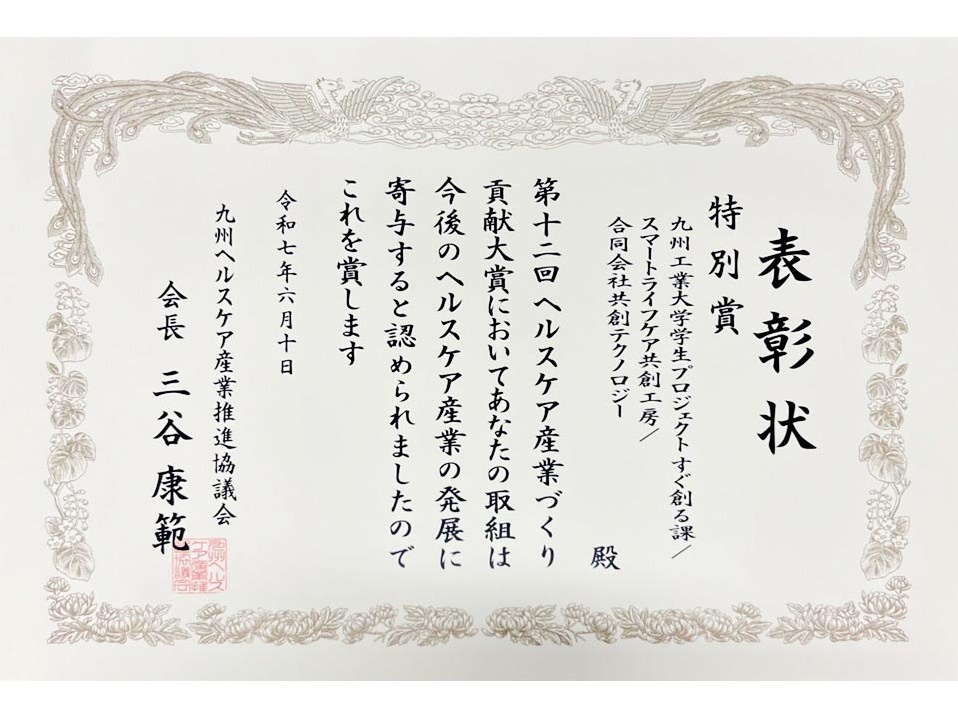 表彰状
特別賞
九州工業大学学生プロジェクトすぐ創る課／
スマートライフケア共創工房／
合同会社共創テクノロジー
殿
第十二回ヘルスケア産業づくり
貢献大賞においてあなたの取組は
今後のヘルスケア産業の発展に
寄与すると認められましたので
これを賞します
令和七年六月十日
九州ヘルスケア産業推進協議会
会長 三谷康範
九州ヘルス
ケア産業推進
協議会